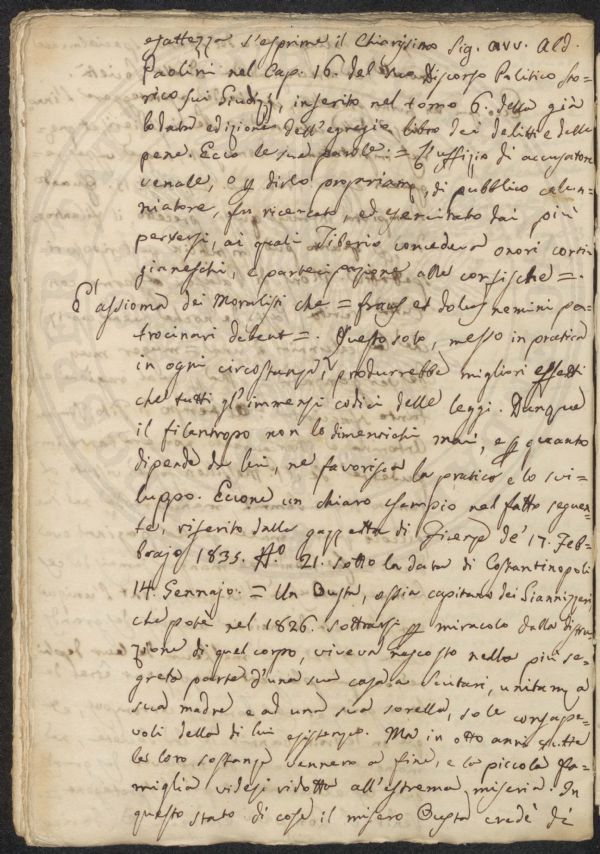 esattezza s'esprime il Chiarissimo Sig. avv. Ald.
Paolini nel Cap. 16. del suo Discorso Politico sto-
rico sui Giudizj, inserito nel tomo 6. della già
lodata edizione dell'egregio libro dei delitti e delle
pene. Ecco le sue parole: = L'uffizio di accusatore
venale, o p dirlo propriam, di pubblico calun-
niatore, fu ricercato, ed esercitato dai più
perversi, ai quali Tiberio concedeva onori corti-
gianeschi, e partecipazione alle confische =.
È assioma dei Moralisti che = fraus et dolus nemini pa-
trocinari debent =. Questo solo, messo in pratica
in ogni circostanza, produrrebbe migliori effetti
che tutti gl'immensi codici delle leggi. Dunque
il filantropo non lo dimentichi mai, e p quanto
dipende da lui, ne favorisca la pratica e lo svi-
luppo. Eccone un chiaro esempio nel fatto seguen-
te, riferito dalla gazzetta di Firenze de' 17. Feb-
brajo 1835. N.º 21. sotto la data di Costantinopoli
14. Gennajo. = Un Ousta, ossia capitano dei Giannizzeri,
che potè nel 1826. sottrarsi p miracolo dalla distru-
zione di quel corpo, viveva nascosto nella più se-
greta parte d'una sua casa a Scutari, unitam a
sua madre e ad una sua sorella, sole consape-
voli della di lui esistenza. Ma in otto anni tutte
le loro sostanze vennero a fine, e la piccola fa-
miglia videsi ridotta all'estrema miseria. In
questo stato di cose il misero Ousta credè di